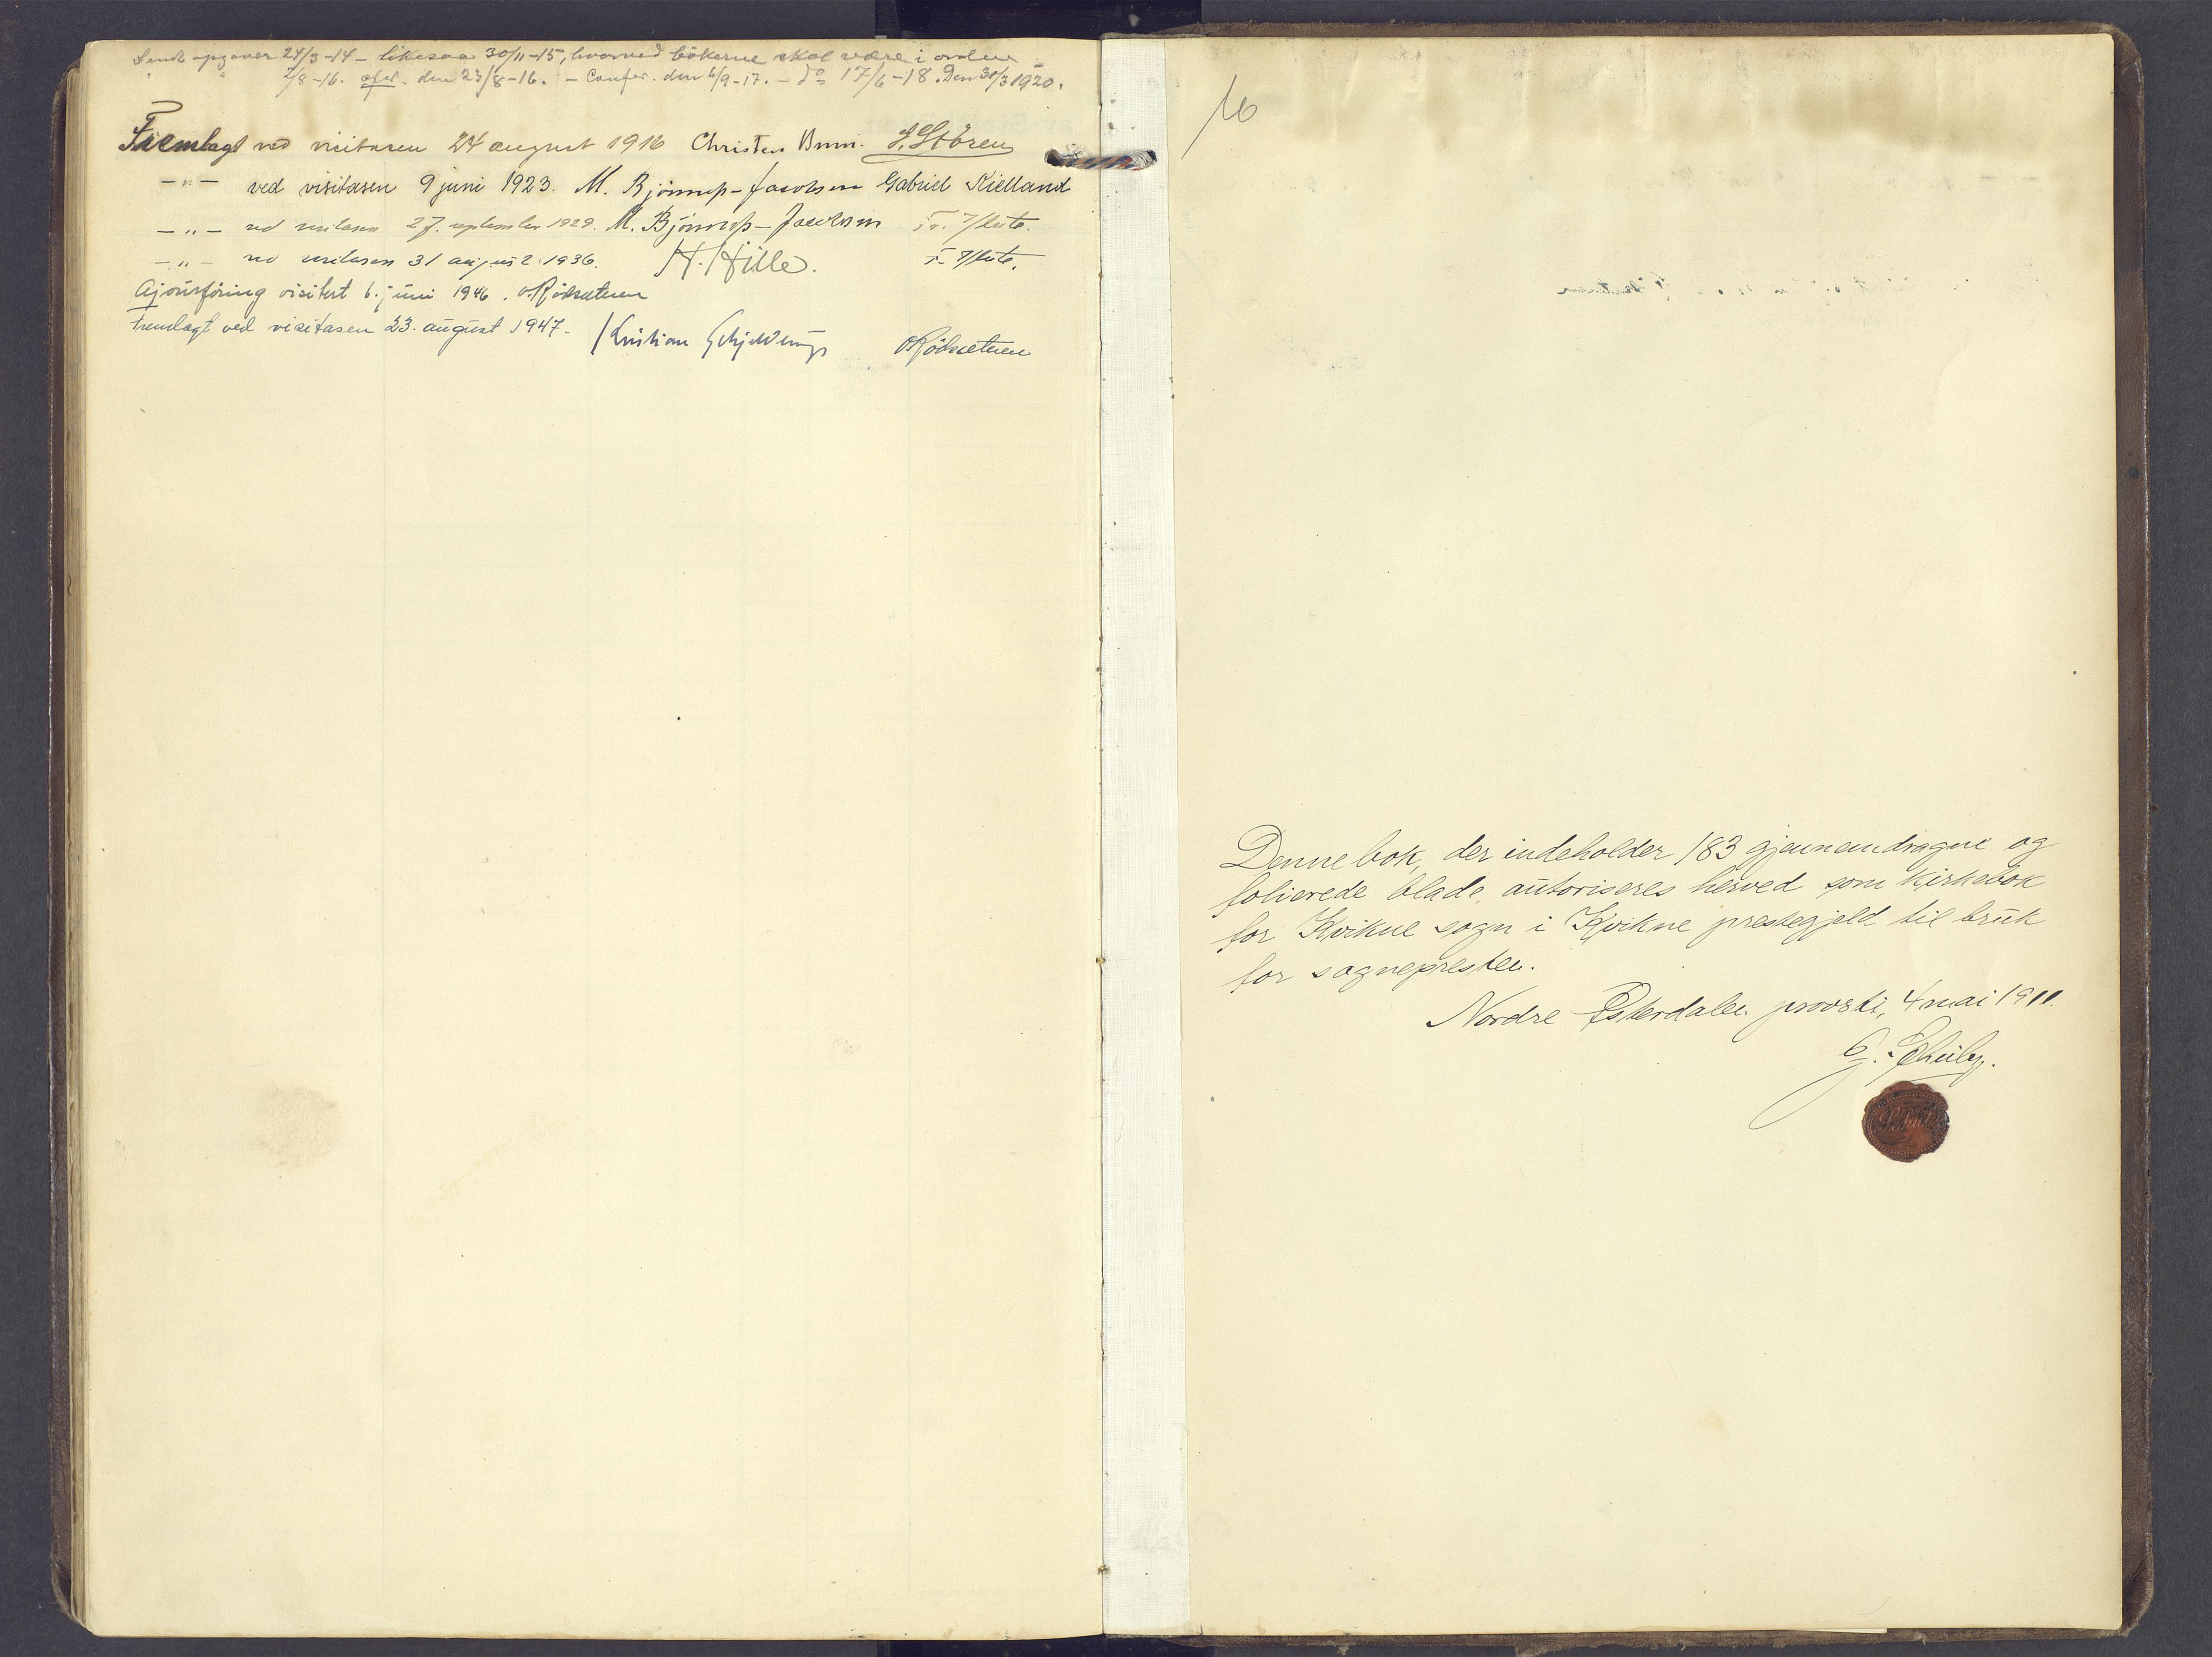 Sendt opgaver 24/3-14 - likesaa 30/11-15, hvorved bökerne skal være i orden
" " 2/8-16. cfer. den 23/8-16. - Confer. den 6/9-17. - do 17/6-18. Den 30/3 1920.
Fremlagt ved visitasen 24 august 1916 Christen Brun. J. Stören
-"- ved visitasen 9 juni 1923. M. Bjönnes-Jacobsen Gabriel Kielland
-"- ved visitasen 27. september 1929. M. Bjönness-Jacobsen
-"- ved visitasen 31 august 1936. H. Hille.
Ajourföring visitert 6. juni 1946. O Röksetuen
Fremlagt ved visitasen 23. august 1947. Kristian Schjelderup O Röksetuen
16
Denne bok, der indeholder 183 gjennemdragne og
folierede blade, autoriseres herved som kirkebok
for Kvikne sogn i Kvikne prestegjeld til bruk
for sognepresten.
Nordre Österdalen provsti, 4 mai 1911.